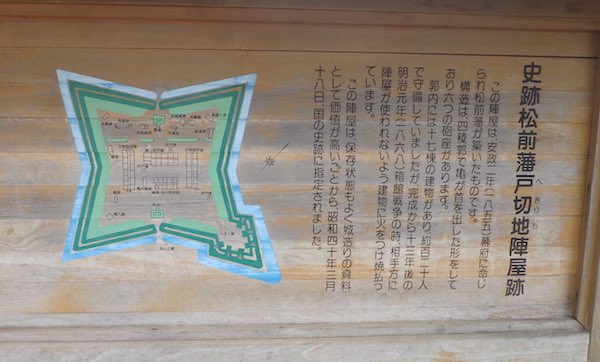 史跡松前藩戸切地陣屋跡
へきりち
この陣屋は、安政二年(一八五五)幕府に命じ
られ松前藩が築いたものです。
構造は四稜郭で亀が首を出した形をして
おり六つの砲座があります。
郭内には十七棟の建物があり、約百二十人
で守備していましたが、完成から十三年後の
明治元年(一八六八)箱館戦争の時、相手方に
陣屋が使われないよう建物に火をつけ焼払っ
ています。
この陣屋は、保存状態もよく城造りの資料
として価値が高いことから、昭和四十年三月
十八日 国の史跡に指定されました。